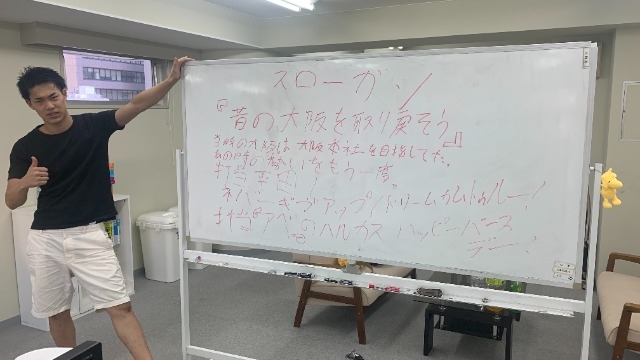 スローガン
『昔の大阪を取り戻そう』
当時の大阪は大阪本社を目指してた。
あの日の賑いをもう一度
打当平で!
ネバーギブアップ!ドリームカムトゥルー!
アベノハルカス ハッピーバース
デー!